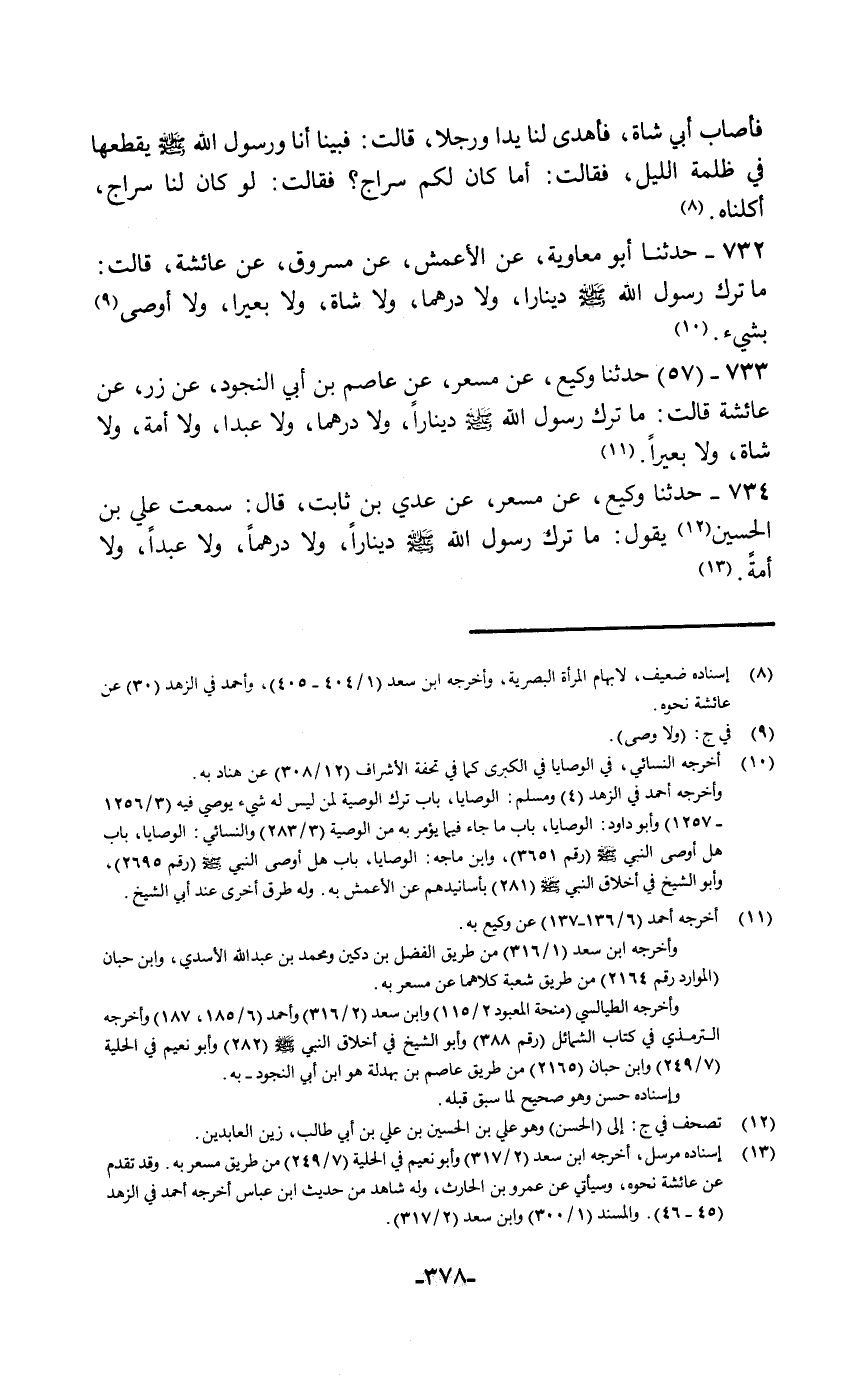 فأصاب أبي شاة، فأهدى لنا يدا ورجلا، قالت: فبينا أنا ورسول الله ﷺ يقطعها
في ظلمة الليل، فقالت: أما كان لكم سراج؟ فقالت: لو كان لنا سراج،
أكلناه. (٨)
٧٣٢ ـ حدثنا أبو معاوية، عن الأعمش، عن مسروق، عن عائشة، قالت:
ما ترك رسول الله ﷺ دينارا، ولا درهما، ولا شاة، ولا بعيرا، ولا أوصى(٩)
بشيء. (١٠)
٧٣٣ ـ (٥٧) حدثنا وكيع، عن مسعر، عن عاصم بن أبي النجود، عن زر، عن
عائشة قالت: ما ترك رسول الله ﷺ ديناراً، ولا درهما، ولا عبدا، ولا أمة، ولا
شاة، ولا بعيراً. (١١)
٧٣٤ ـ حدثنا وكيع، عن مسعر، عن عدي بن ثابت، قال: سمعت علي بن
الحسين(١٢) يقول: ما ترك رسول الله ﷺ ديناراً، ولا درهماً، ولا عبداً، ولا
أمةً. (١٣)
(٨) إسناده ضعيف، لابهام المرأة البصرية، وأخرجه ابن سعد (١/ ٤٠٤ ـ ٤٠٥)، وأحمد في الزهد (٣٠) عن
عائشة نحوه.
(٩) في ج: (ولا وصى).
(١٠) أخرجه النسائي، في الوصايا في الكبرى كما في تحفة الأشراف (١٢/ ٣٠٨) عن هناد به.
وأخرجه أحمد في الزهد (٤) ومسلم: الوصايا، باب ترك الوصية لمن ليس له شيء يوصي فيه (٣/ ١٢٥٦
ـ ١٢٥٧) وأبو داود: الوصايا، باب ما جاء فيما يؤمر به من الوصية (٣/ ٢٨٣) والنسائي: الوصايا، باب
هل أوصى النبي ﷺ (رقم ٣٦٥١)، وابن ماجه: الوصايا، باب هل أوصى النبي ﷺ (رقم ٢٦٩٥)،
وأبو الشيخ في أخلاق النبي ﷺ (٢٨١) بأسانيدهم عن الأعمش به. وله طرق أخرى عند أبي الشيخ.
(١١) أخرجه أحمد (٦/ ١٣٦-١٣٧) عن وكيع به.
وأخرجه ابن سعد (١/ ٣١٦) من طريق الفضل بن دكين ومحمد بن عبدالله الأسدي، وابن حبان
(الموارد رقم ٢١٦٤) من طريق شعبة كلاهما عن مسعر به.
وأخرجه الطيالسي (منحة المعبود ٢/ ١١٥) وابن سعد (٢/ ٣١٦) وأحمد (٦/ ١٨٥، ١٨٧) وأخرجه
الترمذي في كتاب الشمائل (رقم ٣٨٨) وأبو الشيخ في أخلاق النبي ﷺ (٢٨٢) وأبو نعيم في الحلية
(٧/ ٢٤٩) وابن حبان (٢١٦٥) من طريق عاصم بن بهدلة هو ابن أبي النجود ـ به.
وإسناده حسن وهو صحيح لما سبق قبله.
(١٢) تصحف في ج: إلى (الحسن) وهو علي بن الحسين بن علي بن أبي طالب، زين العابدين.
(١٣) إسناده مرسل، أخرجه ابن سعد (٢/ ٣١٧) وأبو نعيم في الحلية (٧/ ٢٤٩) من طريق مسعر به. وقد تقدم
عن عائشة نحوه، وسيأتي عن عمرو بن الحارث، وله شاهد من حديث ابن عباس أخرجه أحمد في الزهد
(٤٥ ـ ٤٦). والمسند (١/ ٣٠٠) وابن سعد (٢/ ٣١٧).
ـ٣٧٨ـ